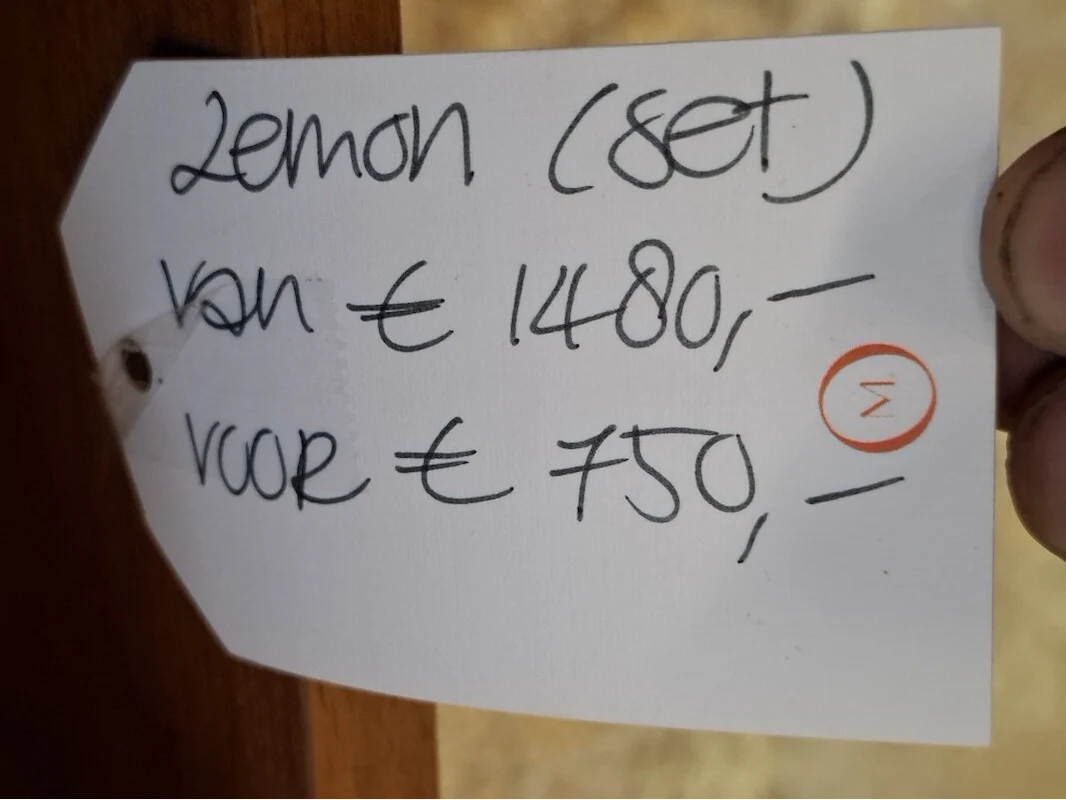 Lemon (set)
van € 1480,-
voor € 750,-
M